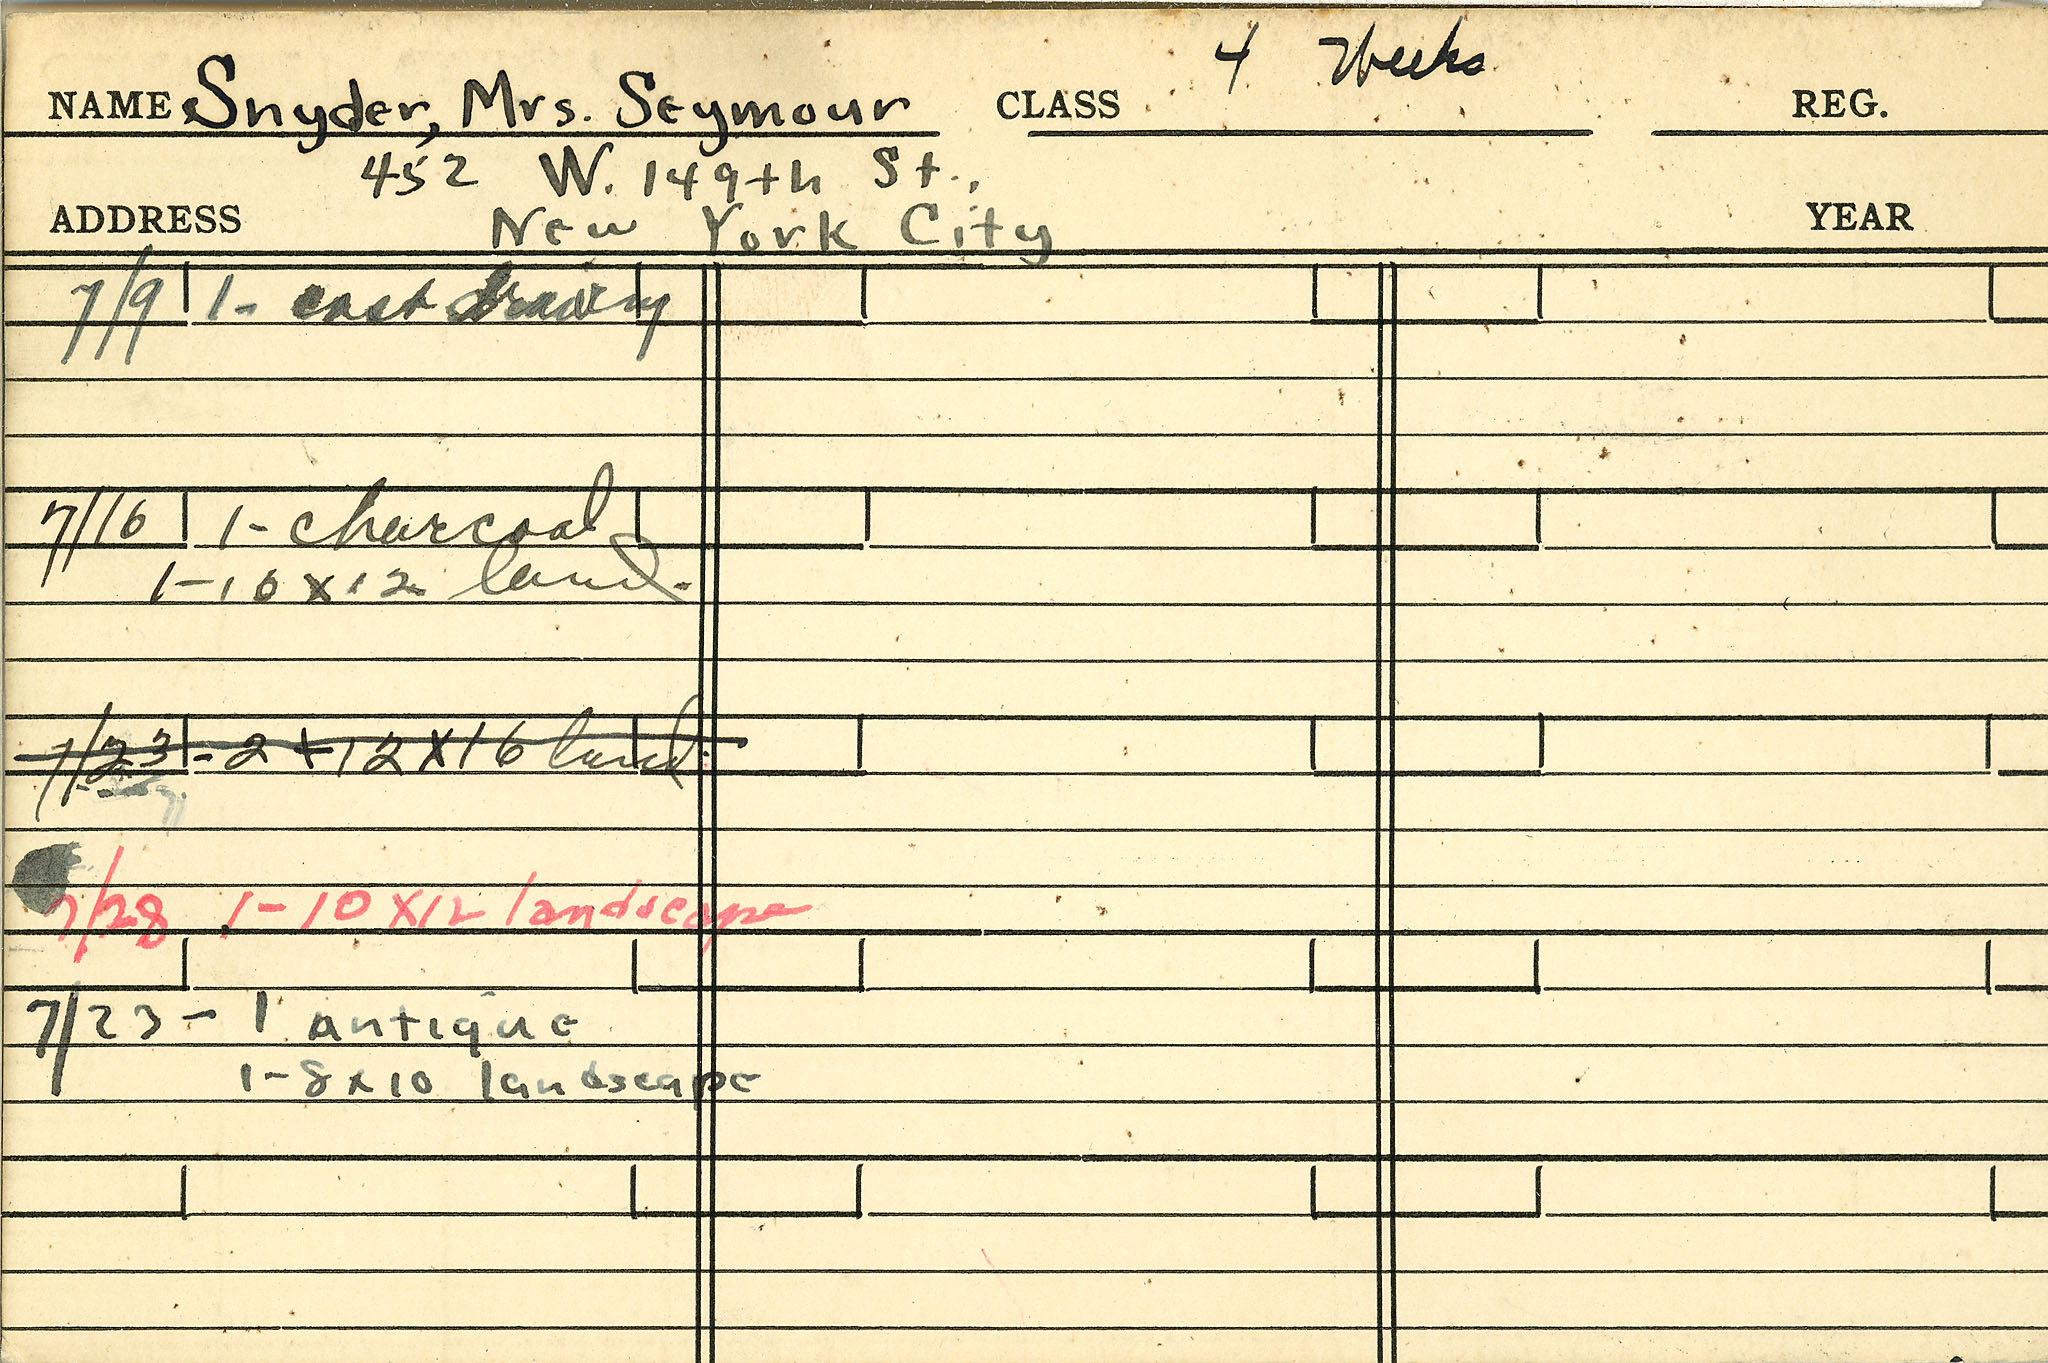 4 Weeks
NAME Snyder, Mrs. Seymour CLASS REG.
452 W. 149th St.,
ADDRESS New York City YEAR
7/9 1- cast drawing
7/16 1- charcoal
1-10x12 land.
7/23 - 2 + 12 x 16 land.
7/28 1-10x12 landscape
7/23 - 1 antique
1-8x10 landscape